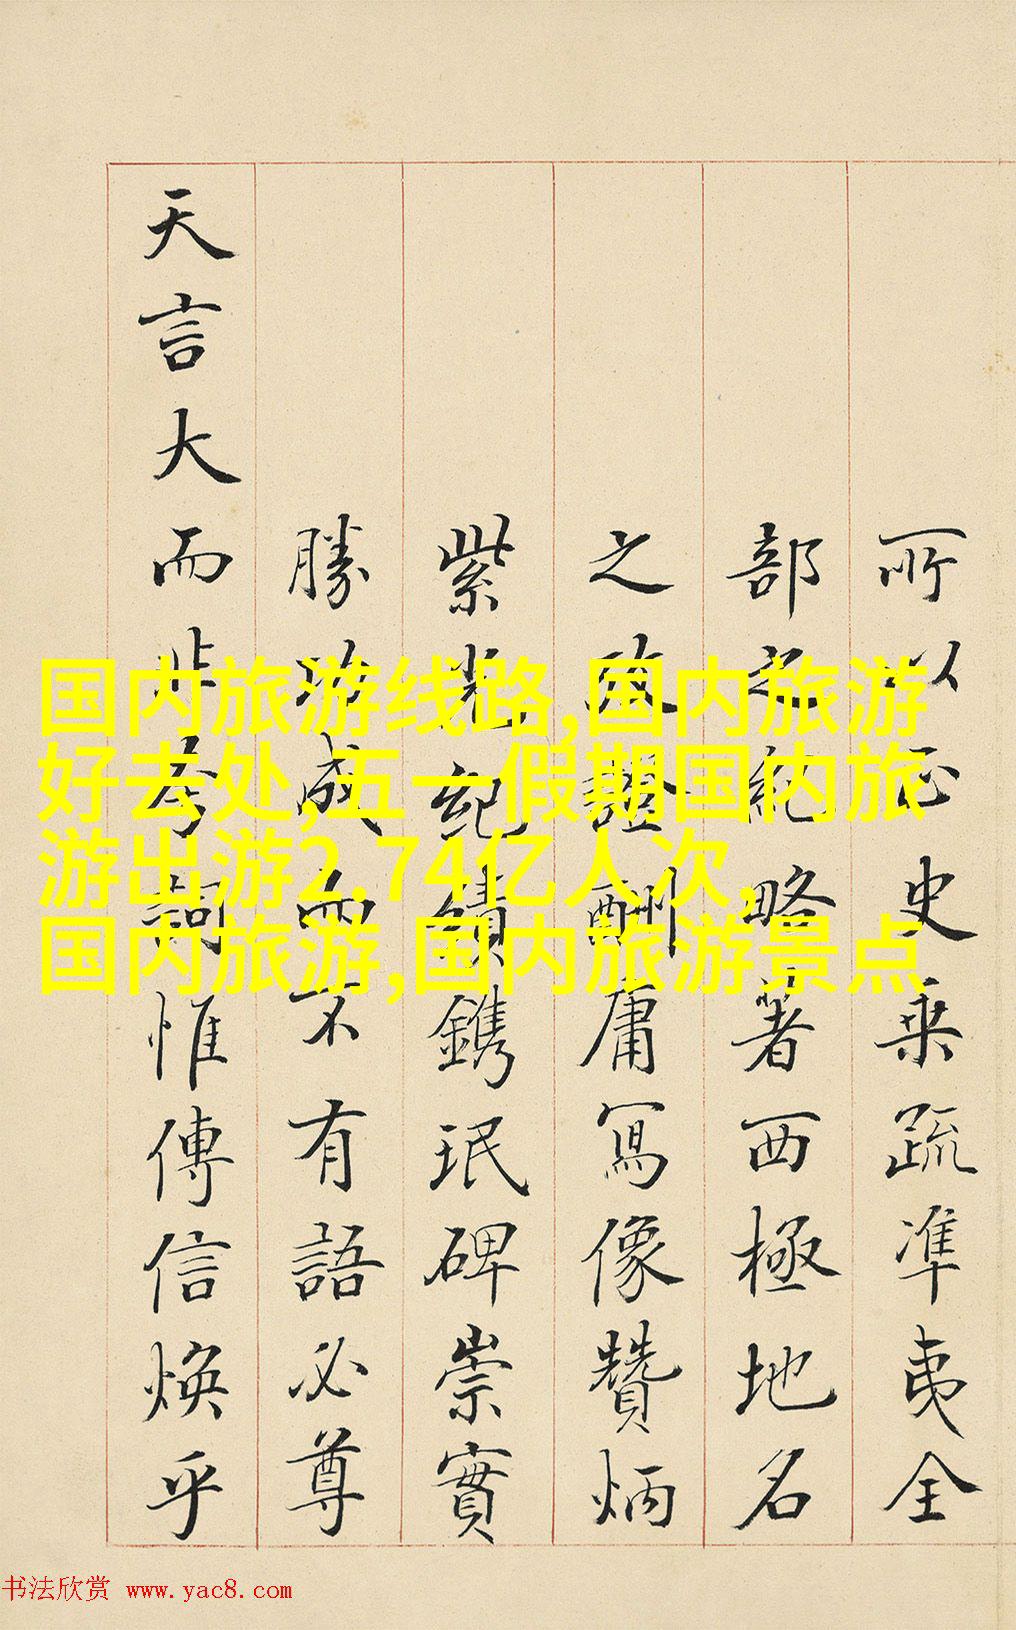 所以正史乘疏準夷全
部紀略著西極地名
之證酬庸寫像贊炳
紫光紀績鐫珉碑崇實
勝功成而不有語必尊
天言大而非夸詞惟傳信煥乎
国内旅游线路,国内旅游
好去处,五一假期国内旅
游出游2.74亿人次,
国内旅游,国内旅游景点
书法欣赏 www.yac8.com